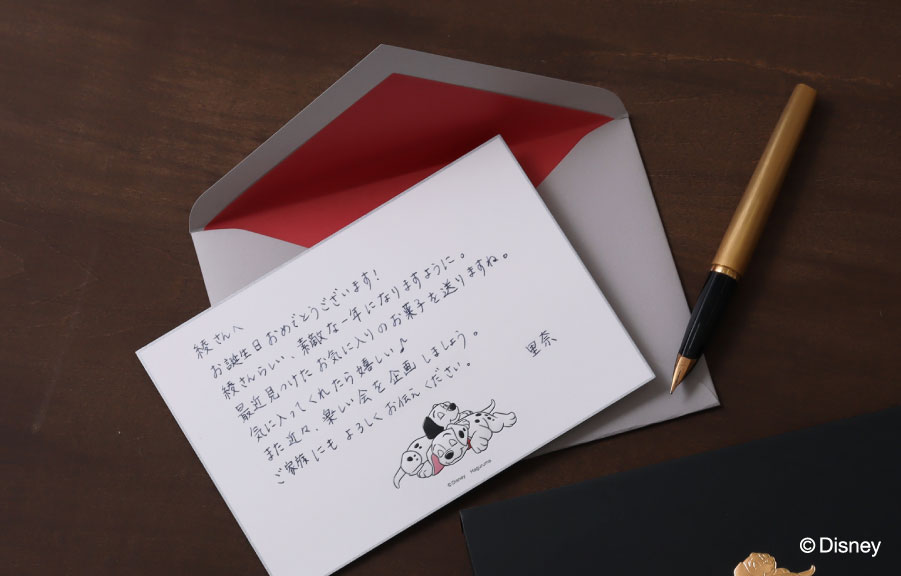 綾さんへ
お誕生日おめでとうございます!
綾さんらしい、素敵な一年になりますように。
最近見つけたお気に入りのお菓子を送りますね。
気に入ってくれたら嬉しい♪
また近々、楽しい会を企画しましょう。
ご家族にもよろしくお伝えください。
里奈
©Disney Haguruma
©Disney